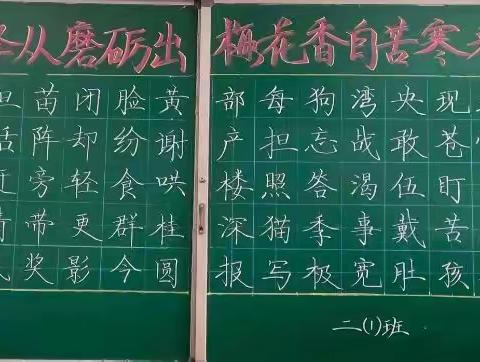 从磨砺出 梅花香自苦寒
苗闭脸黄 部每狗湾央现
阵却纷谢 产担忘战敢苍
旁轻食哄 楼照答渴伍盯
带更群桂 深猫季事戴苦
奖影今圆 报写极宽肚孩
二(1)班